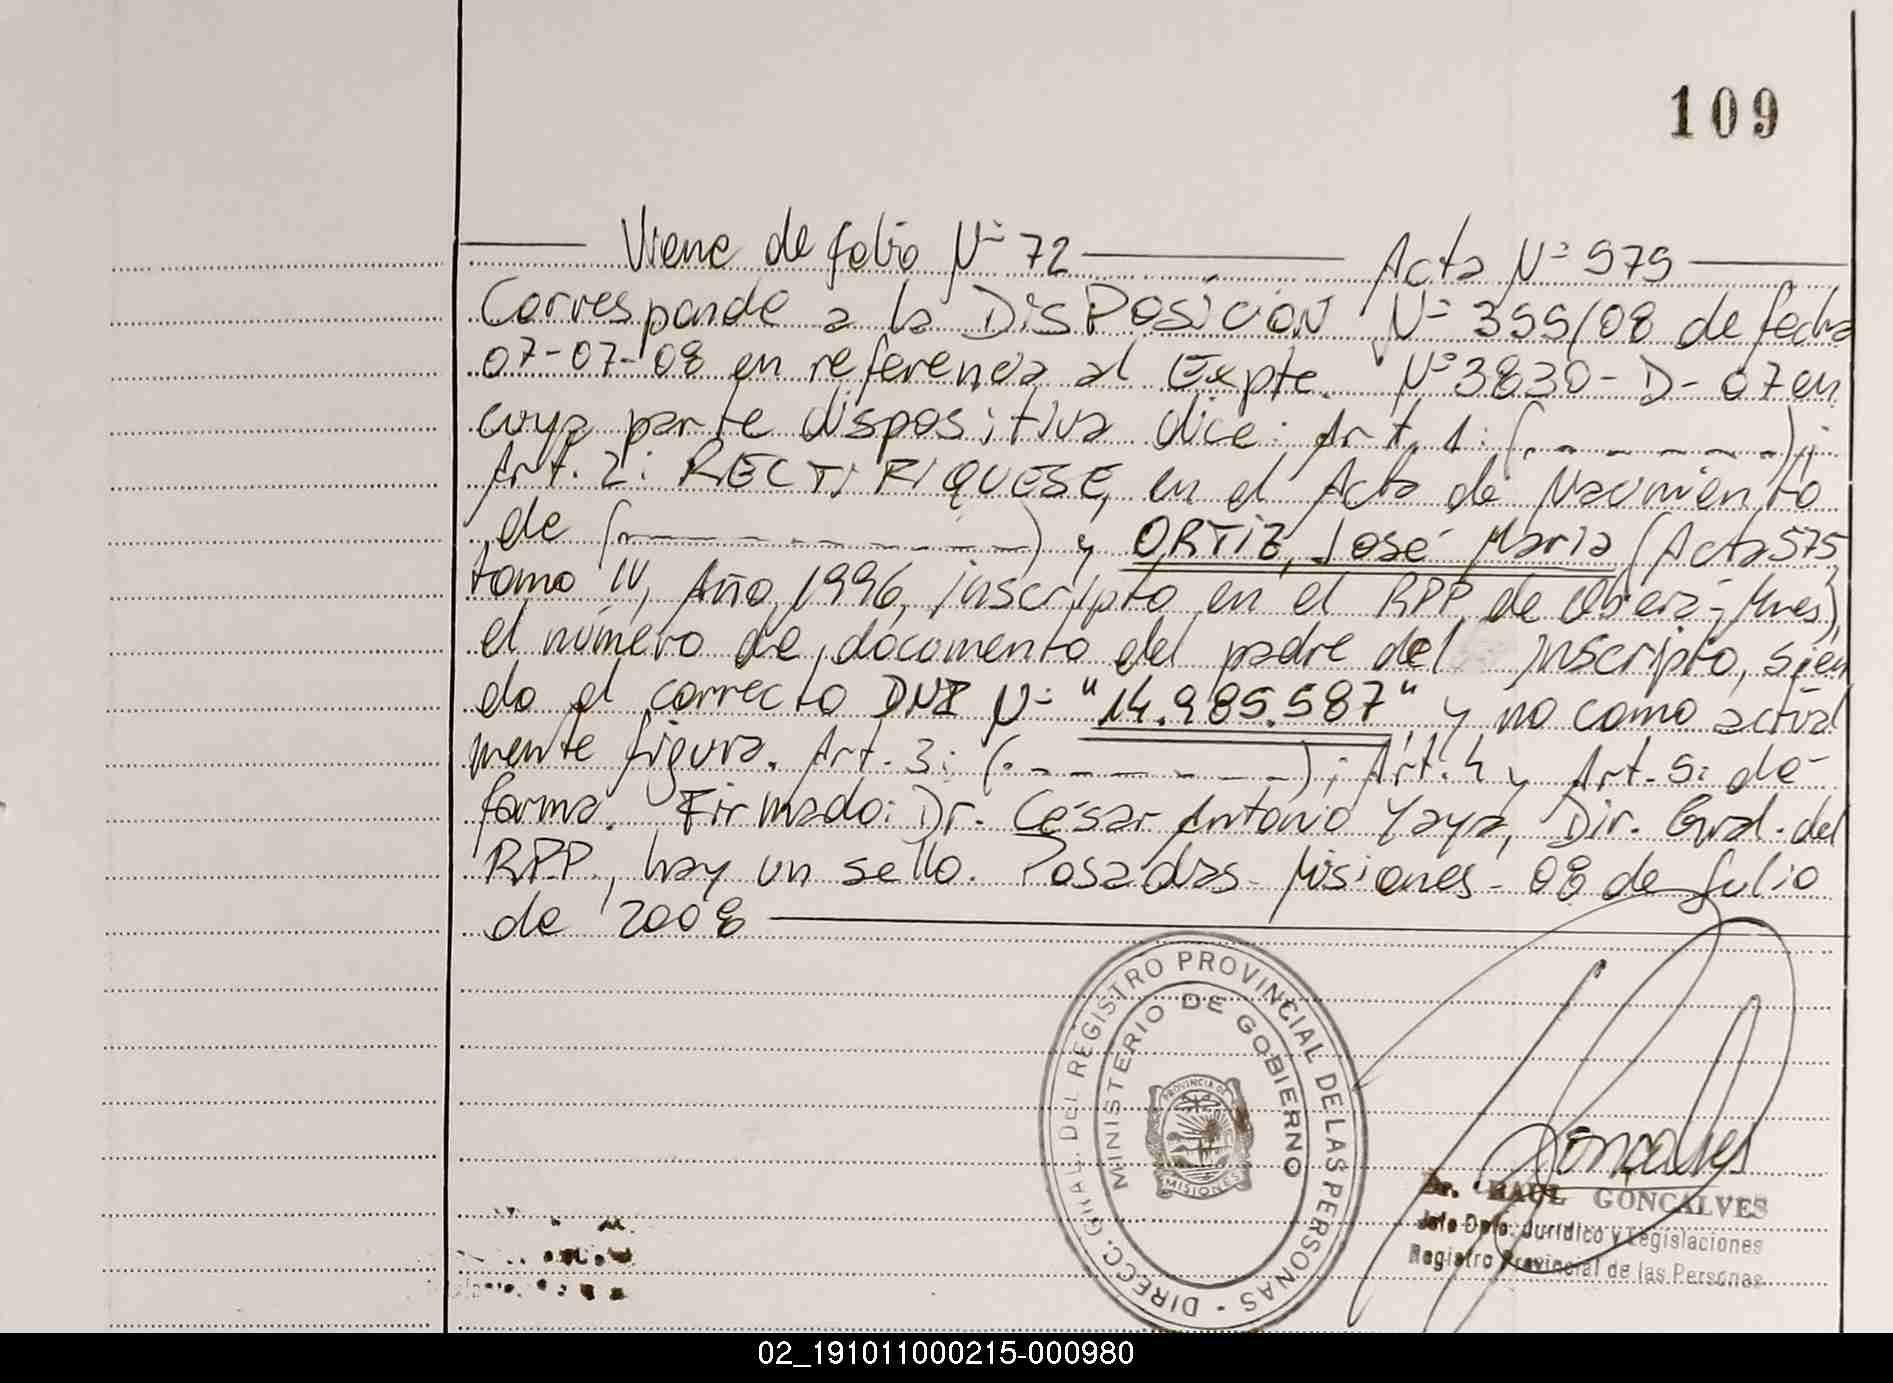 109
Viene de folio Nº 72 Acta Nº 575
Corresponde a la DISPOSICION Nº 355/08 de fecha
07-07-08 en referencia al Expte. Nº 3830-D-07 en
cuya parte dispositiva dice: Art. 1: (- - - - - - -);
Art. 2: RECTIFIQUESE, en el Acta de Nacimiento
de (- - - - - - - - - -) y ORTIZ, José María (Acta 575
tomo IV, Año 1996, inscripto en el RPP de Oberá-Mnes),
el número de documento del padre del inscripto, sien
do el correcto DNI Nº "14.985.587" y no como actual
mente figura. Art. 3: (- - - - - - -); Art. 4 y Art. 5: de-
forma. Firmado: Dr. César Antonio Yaya, Dir. Gral. del
RPP., hay un sello. Posadas- Misiones- 08 de Julio
de 2008
DIRECC. GRAL. DEL REGISTRO PROVINCIAL DE LAS PERSONAS -
MINISTERIO DE GOBIERNO
PROVINCIA DE
MISIONES
Goncalves
Dr. RAUL GONCALVES
Jefe Dpto. Jurídico y Legislaciones
Registro Provincial de las Personas
02_191011000215-000980